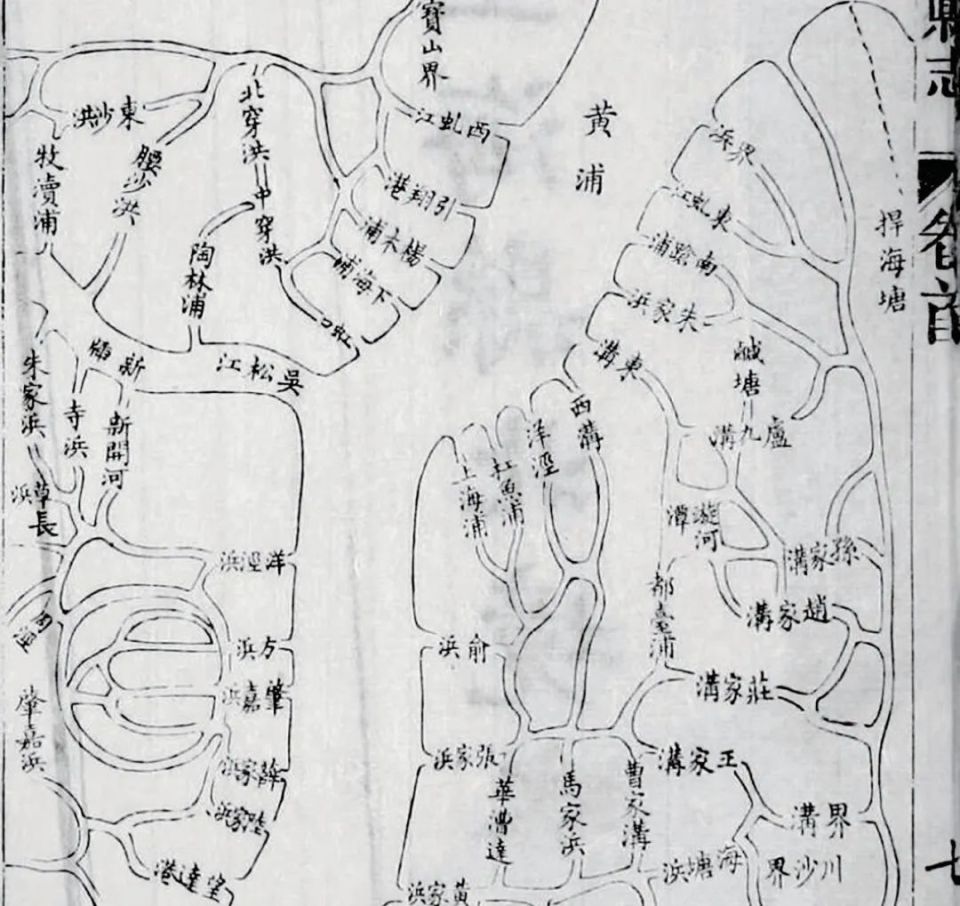 縣志
卷首
七
捍海塘
界浜
東虬江
南蹌浦
朱家浜
東溝
鹹塘
盧九溝
孫家溝
趙家溝
莊家溝
王家溝
界溝
川沙界
海塘浜
漩河
潭
都臺浦
曹家溝
馬家浜
華漕達
西溝
洋涇
扛魚浦
上海浦
俞浜
張家浜
黃家浜
黃浦
寶山界
西虬江
引翔港
楊木浦
下海浦
虹口
北穿洪
中穿洪
陶林浦
吳松江
東沙洪
腰沙洪
牧瀆浦
新牐
新開河
寺浜
朱家浜
長草浜
洋涇浜
方浜
肇嘉浜
薛家浜
陸家浜
望達港
肇嘉浜